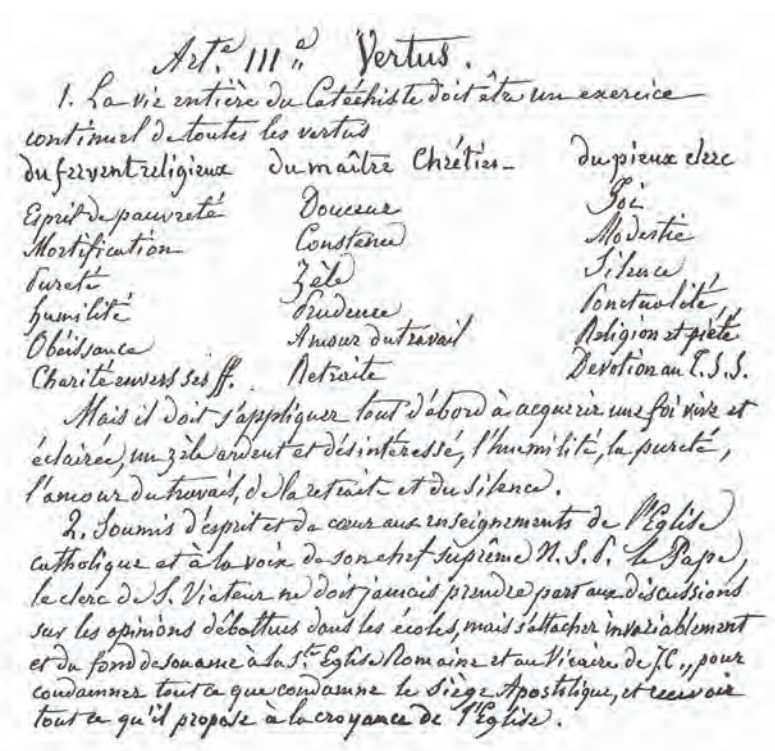 Art.e III.e Vertus.
1. La vie entière du Catéchiste doit être un exercice
continuel de toutes les vertus
du fervent religieux du maître Chrétien du pieux clerc
Esprit de pauvreté Douceur Foi
Mortification Constance Modestie
Pureté Zèle Silence
humilité Prudence Ponctualité,
Obéissance Amour du travail Religion et piété
Charité envers ses ff. Retraite Devotion au T.S.S.
Mais il doit s'appliquer tout d'abord à acquérir une foi vive et
éclairée, un zèle ardent et désintéressé, l'humilité, la pureté,
l'amour du travail, de la retraite et du silence.
2. Soumis d'esprit et de cœur aux enseignements de l'Eglise
catholique et à la voix de son chef suprême N.S.P. le Pape,
le clerc de S. Viateur ne doit jamais prendre part aux discussions
sur les opinions débattues dans les écoles, mais s'attacher invariablement
et du fond de son ame à la Ste Eglise Romaine et au Vicaire de J.C., pour
condamner tout ce que condamne le Siège Apostolique, et recevoir
tout ce qu'il propose à la croyance de l'Eglise.